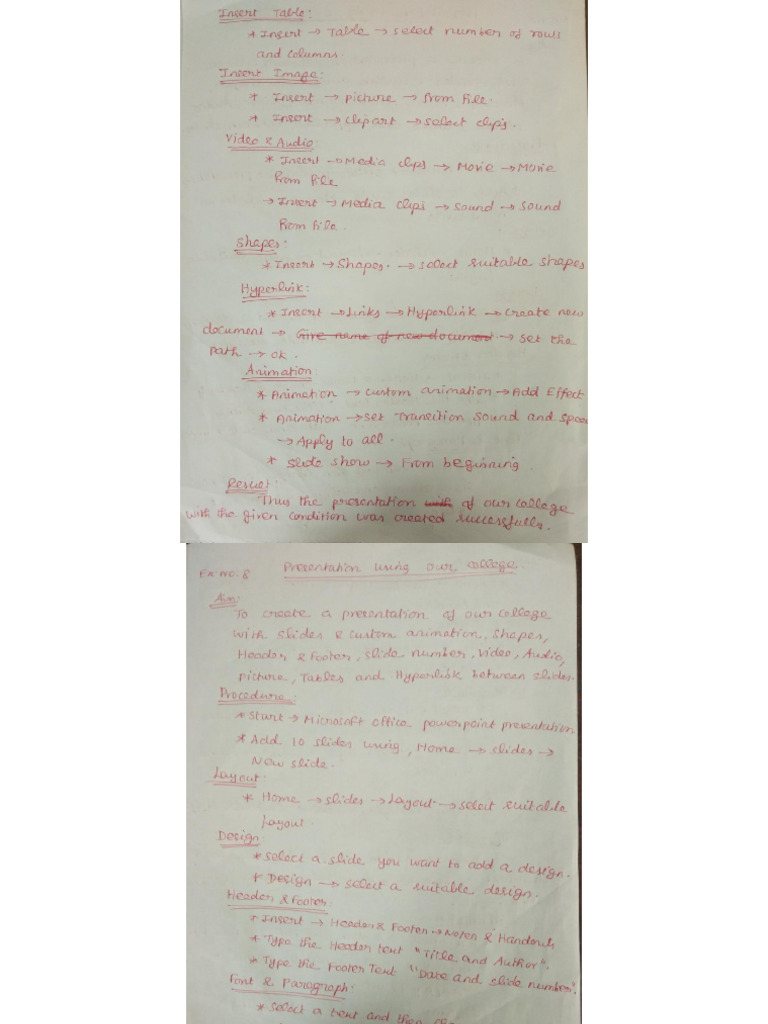 Insert Table:
* Insert → Table → select number of rows
and columns.
Insert Image:
* Insert → picture → from file.
* Insert → clipart → select clips.
Video & Audio
* Insert → Media clips → Movie → Movie
from file
→ Insert → Media clips → sound → sound
from file.
Shapes:
* Insert → Shapes. → select suitable shapes
Hyperlink:
* Insert → Links → Hyperlink → create new
document → Give name of new document → set the
path → ok.
Animation:
* Animation → custom animation → Add Effect
* Animation → set Transition sound and
→ Apply to all.
* slide show → From beginning.
Result:
Thus the presentation with of our college
with the given condition was created successfully.
Ex no: 8 Presentation using our college.
Aim:
To create a presentation of our college
with slides & custom animation, Shapes,
Header & Footer, slide number, Video, Audio,
picture, Tables and Hyperlink between slides.
Procedure:
* Start → Microsoft office powerpoint presentation
* Add 10 slides using, Home → slides →
New slide.
Layout.
* Home → slides → Layout → select suitable
Layout.
Design
* select a slide you want to add a design.
* Design → select a suitable design.
Header & Footer:
* Insert → Header & Footer → Notes & Handouts
* Type the Header text "Title and Author".
* Type the Footer Text "Date and slide number".
Font & Paragraph:
* select a text and then